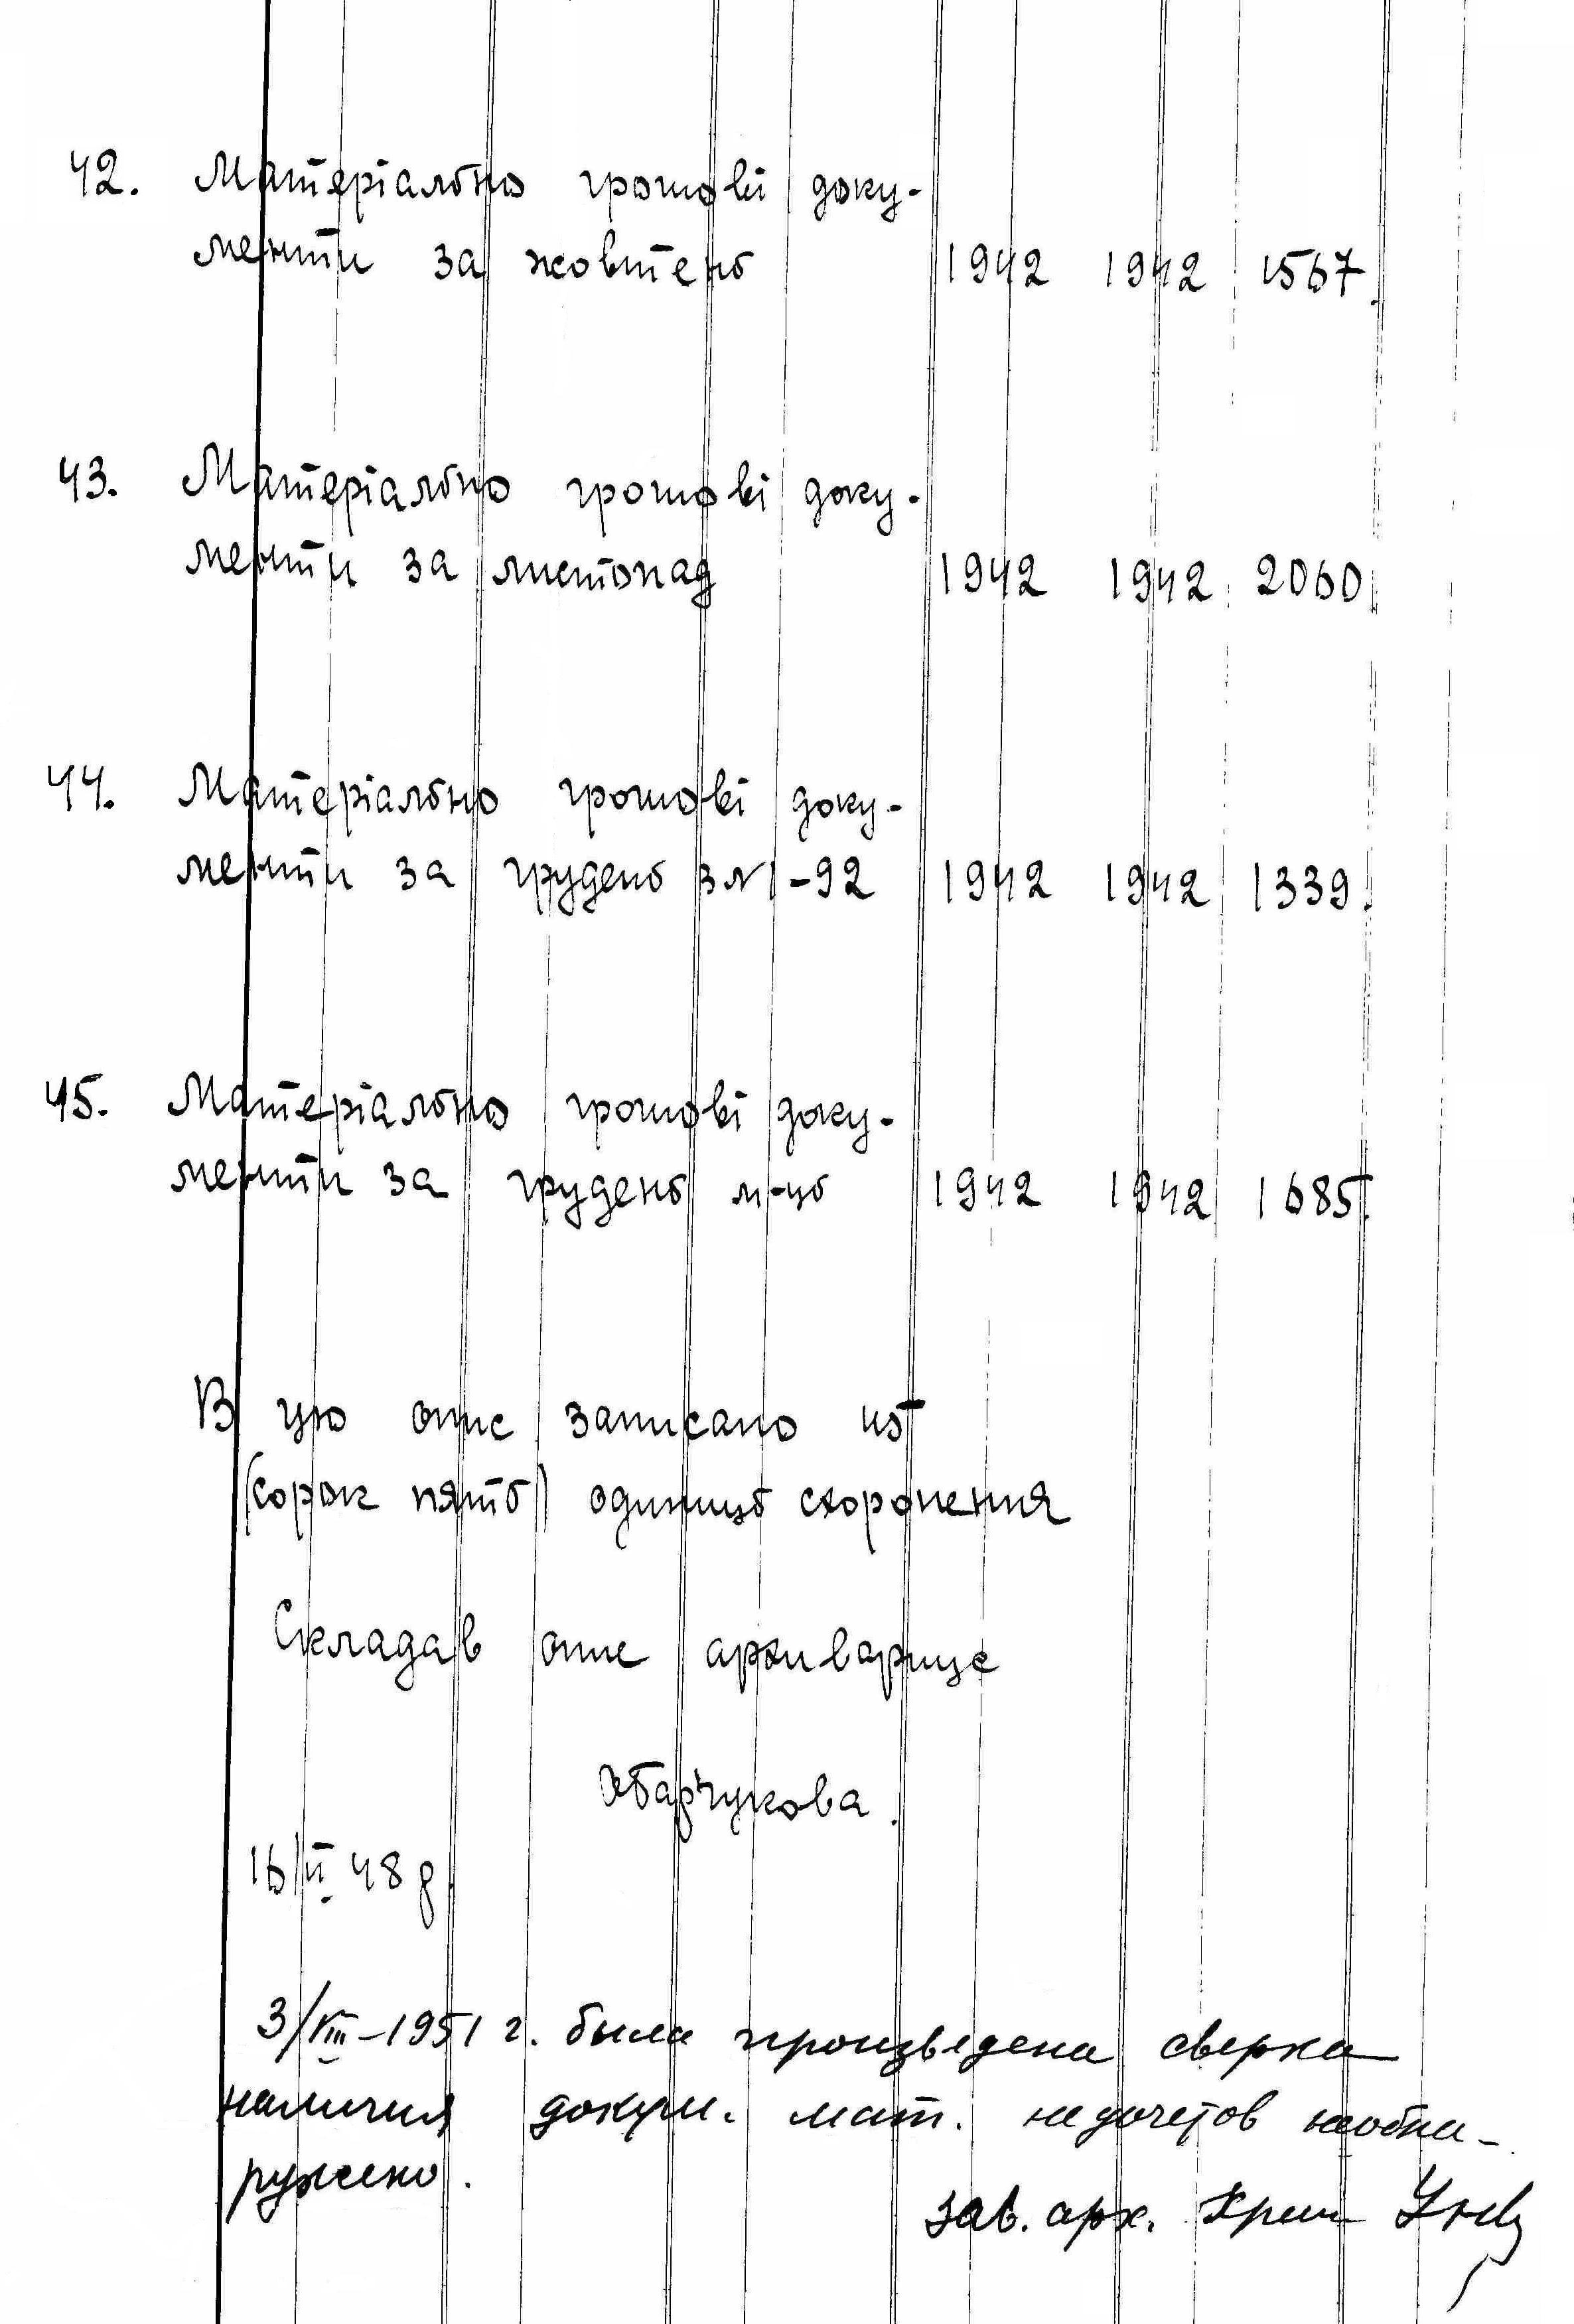 42. Матеріально грошові доку-
менти за жовтень 1942 1942 1567.
43. Матеріально грошові доку-
менти за листопад 1942 1942 2060
44. Матеріально грошові доку-
менти за грудень з №1-92 1942 1942 1339.
45. Матеріально грошові доку-
менти за грудень м-ць 1942 1942 1685.
В цю опис записано 45
(сорок пять) одиниць схоронения
Складав опис архиварище
16/II 48 р
3/VIII-1951 г. была произведена сверка
наличия докум. мат. недочетов необна-
ружено.
зав. арх.